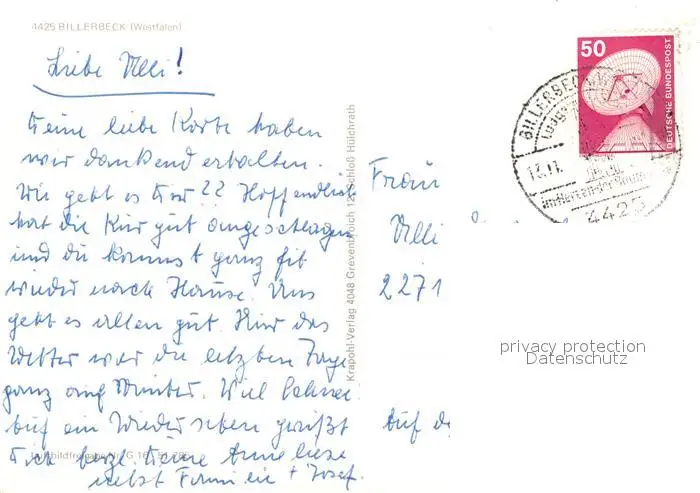 4425 BILLERBECK (Westfalen)
Liebe Ulli!
Deine liebe Karte haben
wir dankend erhalten.
Wie geht es Dir?? Hoffendlich
hat die Kur gut angeschlagen
und du kommst ganz fit
wieder nach Hause. Uns
geht es allen gut. Hier das
Wetter war die letzten Tage
ganz auf Winter. Viel
auf ein Wiedersehen grüßt
Dich herzl. Deine Anneliese
nebst Familie + Josef.
G 16
Krapohl-Verlag 4048 Grevenbroich 12, Schloß Hülchrath
50
DEUTSCHE BUNDESPOST
BILLERBECK
4425
Frau
Ulli
2271
Auf d
privacy protection
Datenschutz